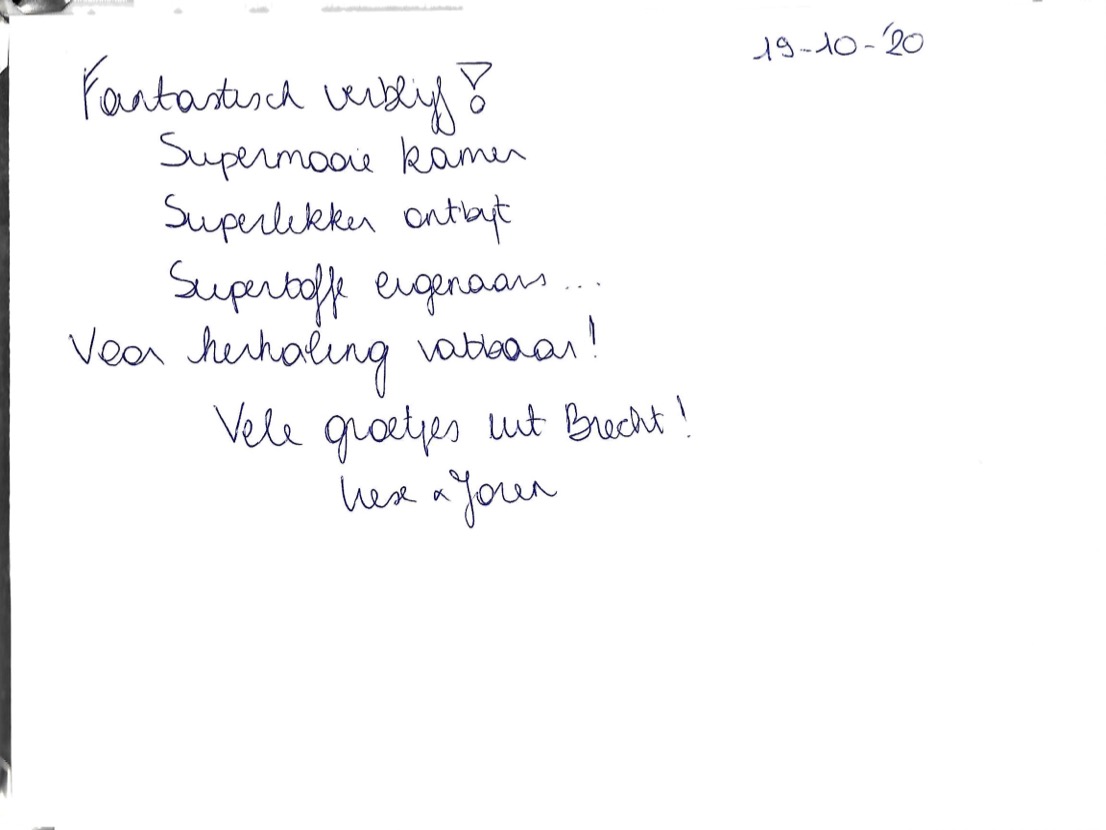 19-10-'20
Fantastisch verblijf!
Supermooie kamer
Superlekker ontbijt
Supertoffe eigenaars...
Voor herhaling vatbaar!
Vele groetjes uit Brecht!
& Joren